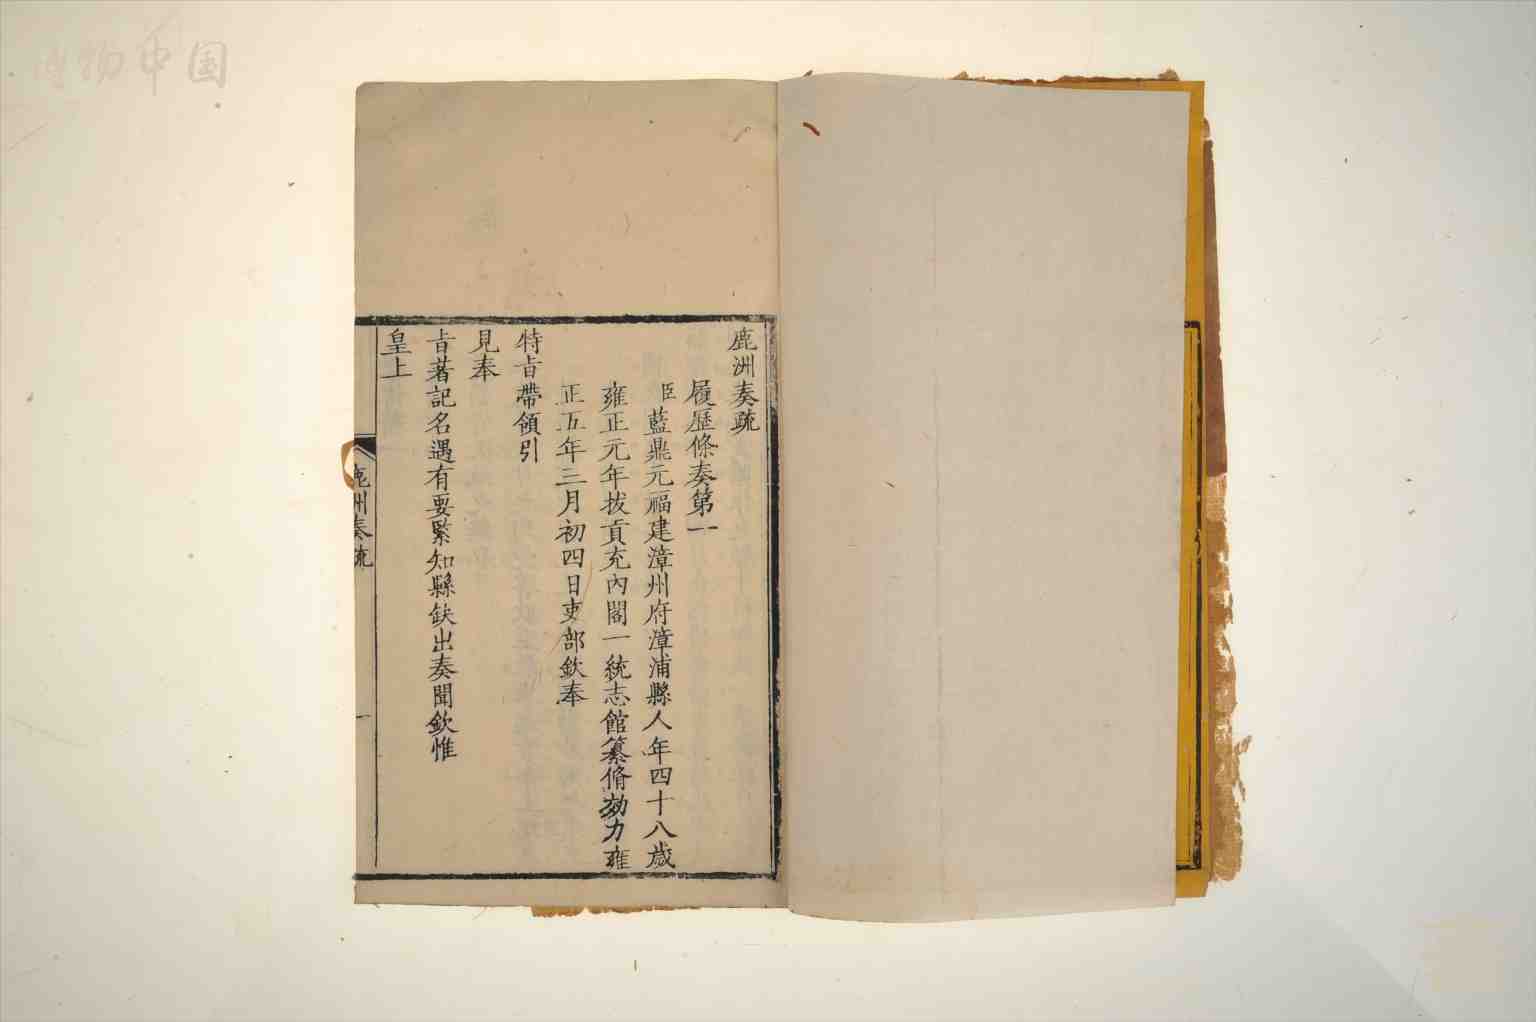 鹿洲奏疏
履歷條奏第一
臣藍鼎元福建漳州府漳浦縣人年四十八歲
雍正元年拔貢充內閣一統志館纂脩効力雍
正五年三月初四日吏部欽奉
特旨帶領引
見奉
旨著記名遇有要緊知縣缺出奏聞欽惟
皇上
鹿洲奏疏
一
博物中国